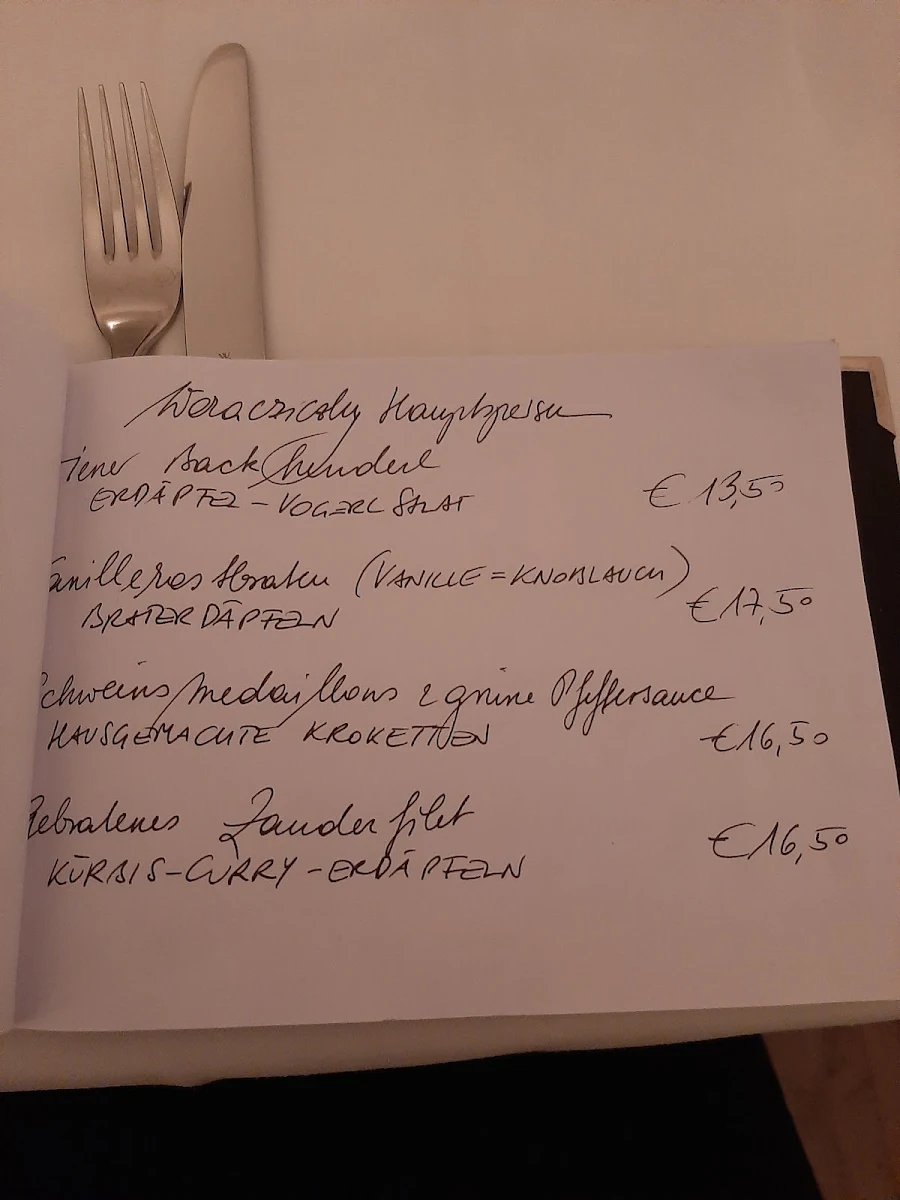 Woracziczky Hauptspeisen
iener Backhenderl
ERDÄPFEL-VOGERLSALAT
€ 13,50
anillerostbraten (VANILLE=KNOBLAUCH)
BRATERDÄPFELN
€ 17,50
chweinsmedaillons & grüne Pfeffersauce
HAUSGEMACHTE KROKETTEN
€ 16,50
Gebratenes Zanderfilet
KÜRBIS-CURRY-ERDÄPFELN
€ 16,50